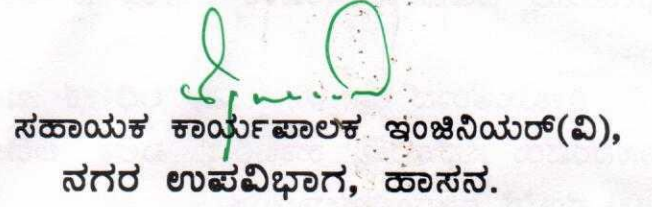 ಸಹಾಯಕ ಕಾರ್ಯಪಾಲಕ ಇಂಜಿನಿಯರ್(ವಿ),
ನಗರ ಉಪವಿಭಾಗ, ಹಾಸನ.